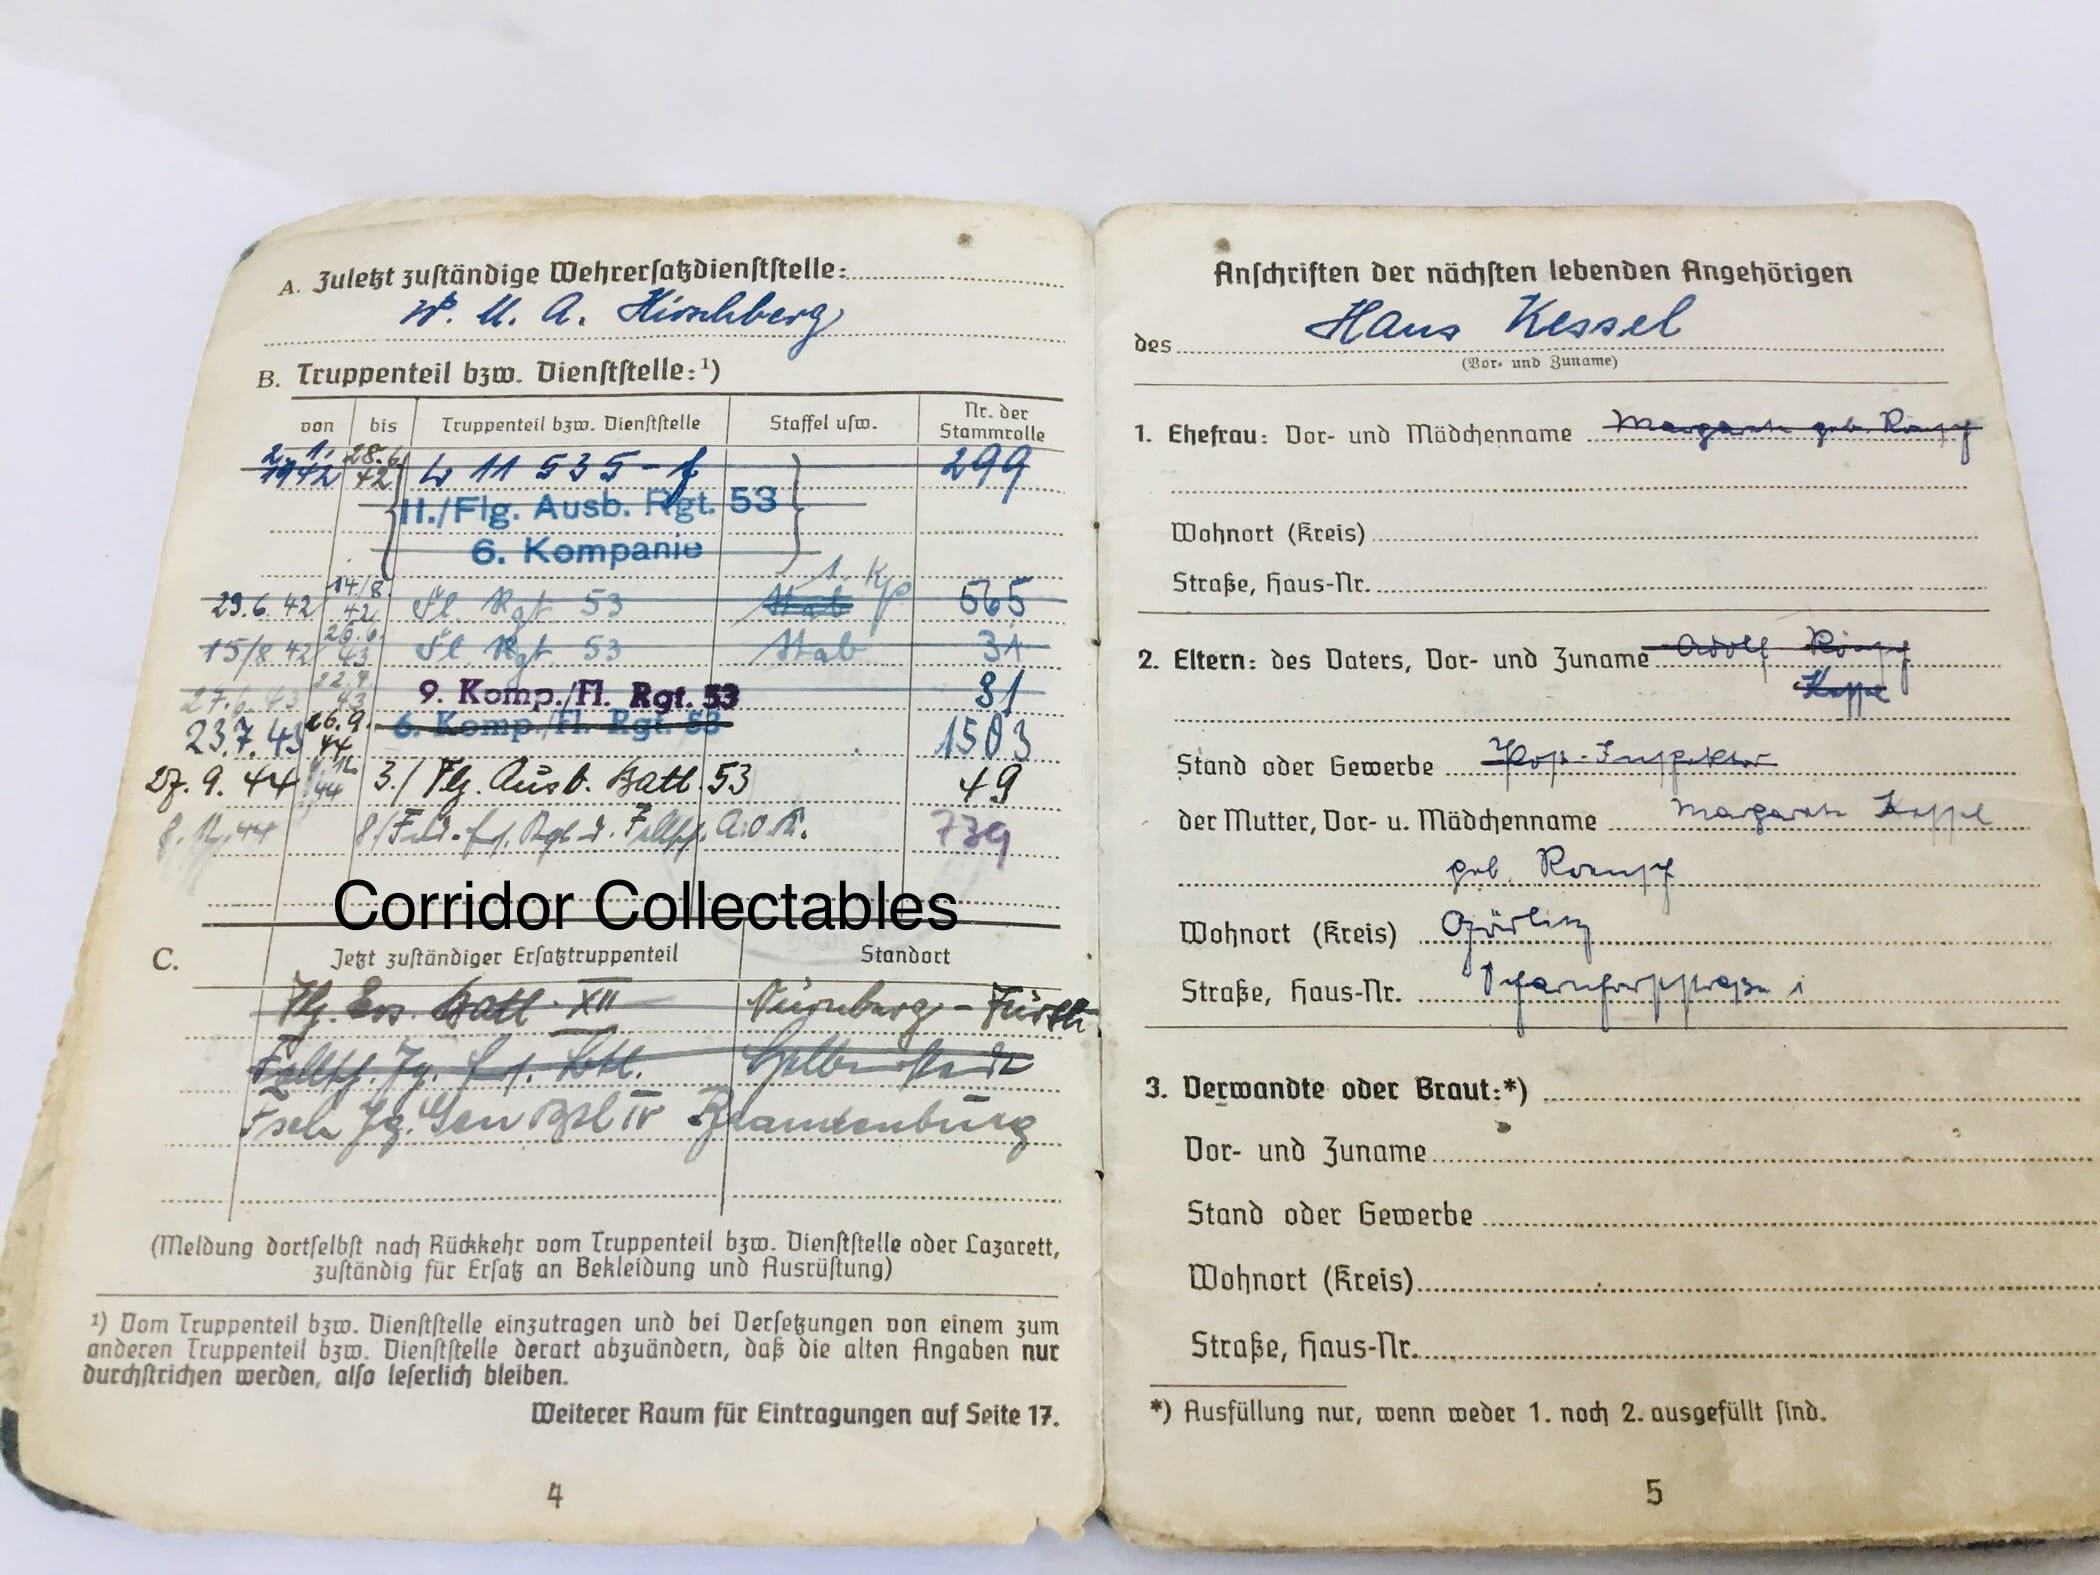 A. Zuletzt zuständige Wehrersatzdienststelle:
W. M. A. Hirschberg
B. Truppenteil bzw. Dienststelle:¹)
von bis Truppenteil bzw. Dienststelle Staffel usw. Nr. der Stammrolle
2. 1. 1942 28.6. 42 L 11 535 - f 299
II./Flg. Ausb. Rgt. 53
6. Kompanie
1. Kp
29.6.42 14/8. 42 Fl Rgt 53 Stab 565
15/8.42 26.6. 43 Fl Rgt 53 Stab 31
27.6.43 22.7. 43 9. Komp./Fl. Rgt. 53 81
23.7.43 26.9. 44 6. Komp./Fl. Rgt. 53 1503
27. 9. 44 3./ Flg. Ausb. Batl. 53 49
44 A.O.K. 739
Corridor Collectables
C. Jetzt zuständiger Ersatztruppenteil Standort
Flg. Ers. Batl. XII Nürnberg - Fürth
Fallsch. Jg. Ers. Btl. Halberstadt
Fsch Jg. Gen Btl IV Brandenburg
(Meldung dortselbst nach Rückkehr vom Truppenteil bzw. Dienststelle oder Lazarett,
zuständig für Ersatz an Bekleidung und Ausrüstung)
¹) Vom Truppenteil bzw. Dienststelle einzutragen und bei Versetzungen von einem zum
anderen Truppenteil bzw. Dienststelle derart abzuändern, daß die alten Angaben nur
durchstrichen werden, also leserlich bleiben.
Weiterer Raum für Eintragungen auf Seite 17.
4
Anschriften der nächsten lebenden Angehörigen
des Hans Kessel
(Vor- und Zuname)
1. Ehefrau: Vor- und Mädchenname Margarete geb.
Wohnort (Kreis)
Straße, Haus-Nr.
2. Eltern: des Vaters, Vor- und Zuname Adolf
Stand oder Gewerbe Post-Inspektor
der Mutter, Vor- u. Mädchenname Margarete Kessel
geb.
Wohnort (Kreis) Görlitz
Straße, Haus-Nr.
3. Verwandte oder Braut:*)
Vor- und Zuname
Stand oder Gewerbe
Wohnort (Kreis)
Straße, Haus-Nr.
*) Ausfüllung nur, wenn weder 1. noch 2. ausgefüllt sind.
5